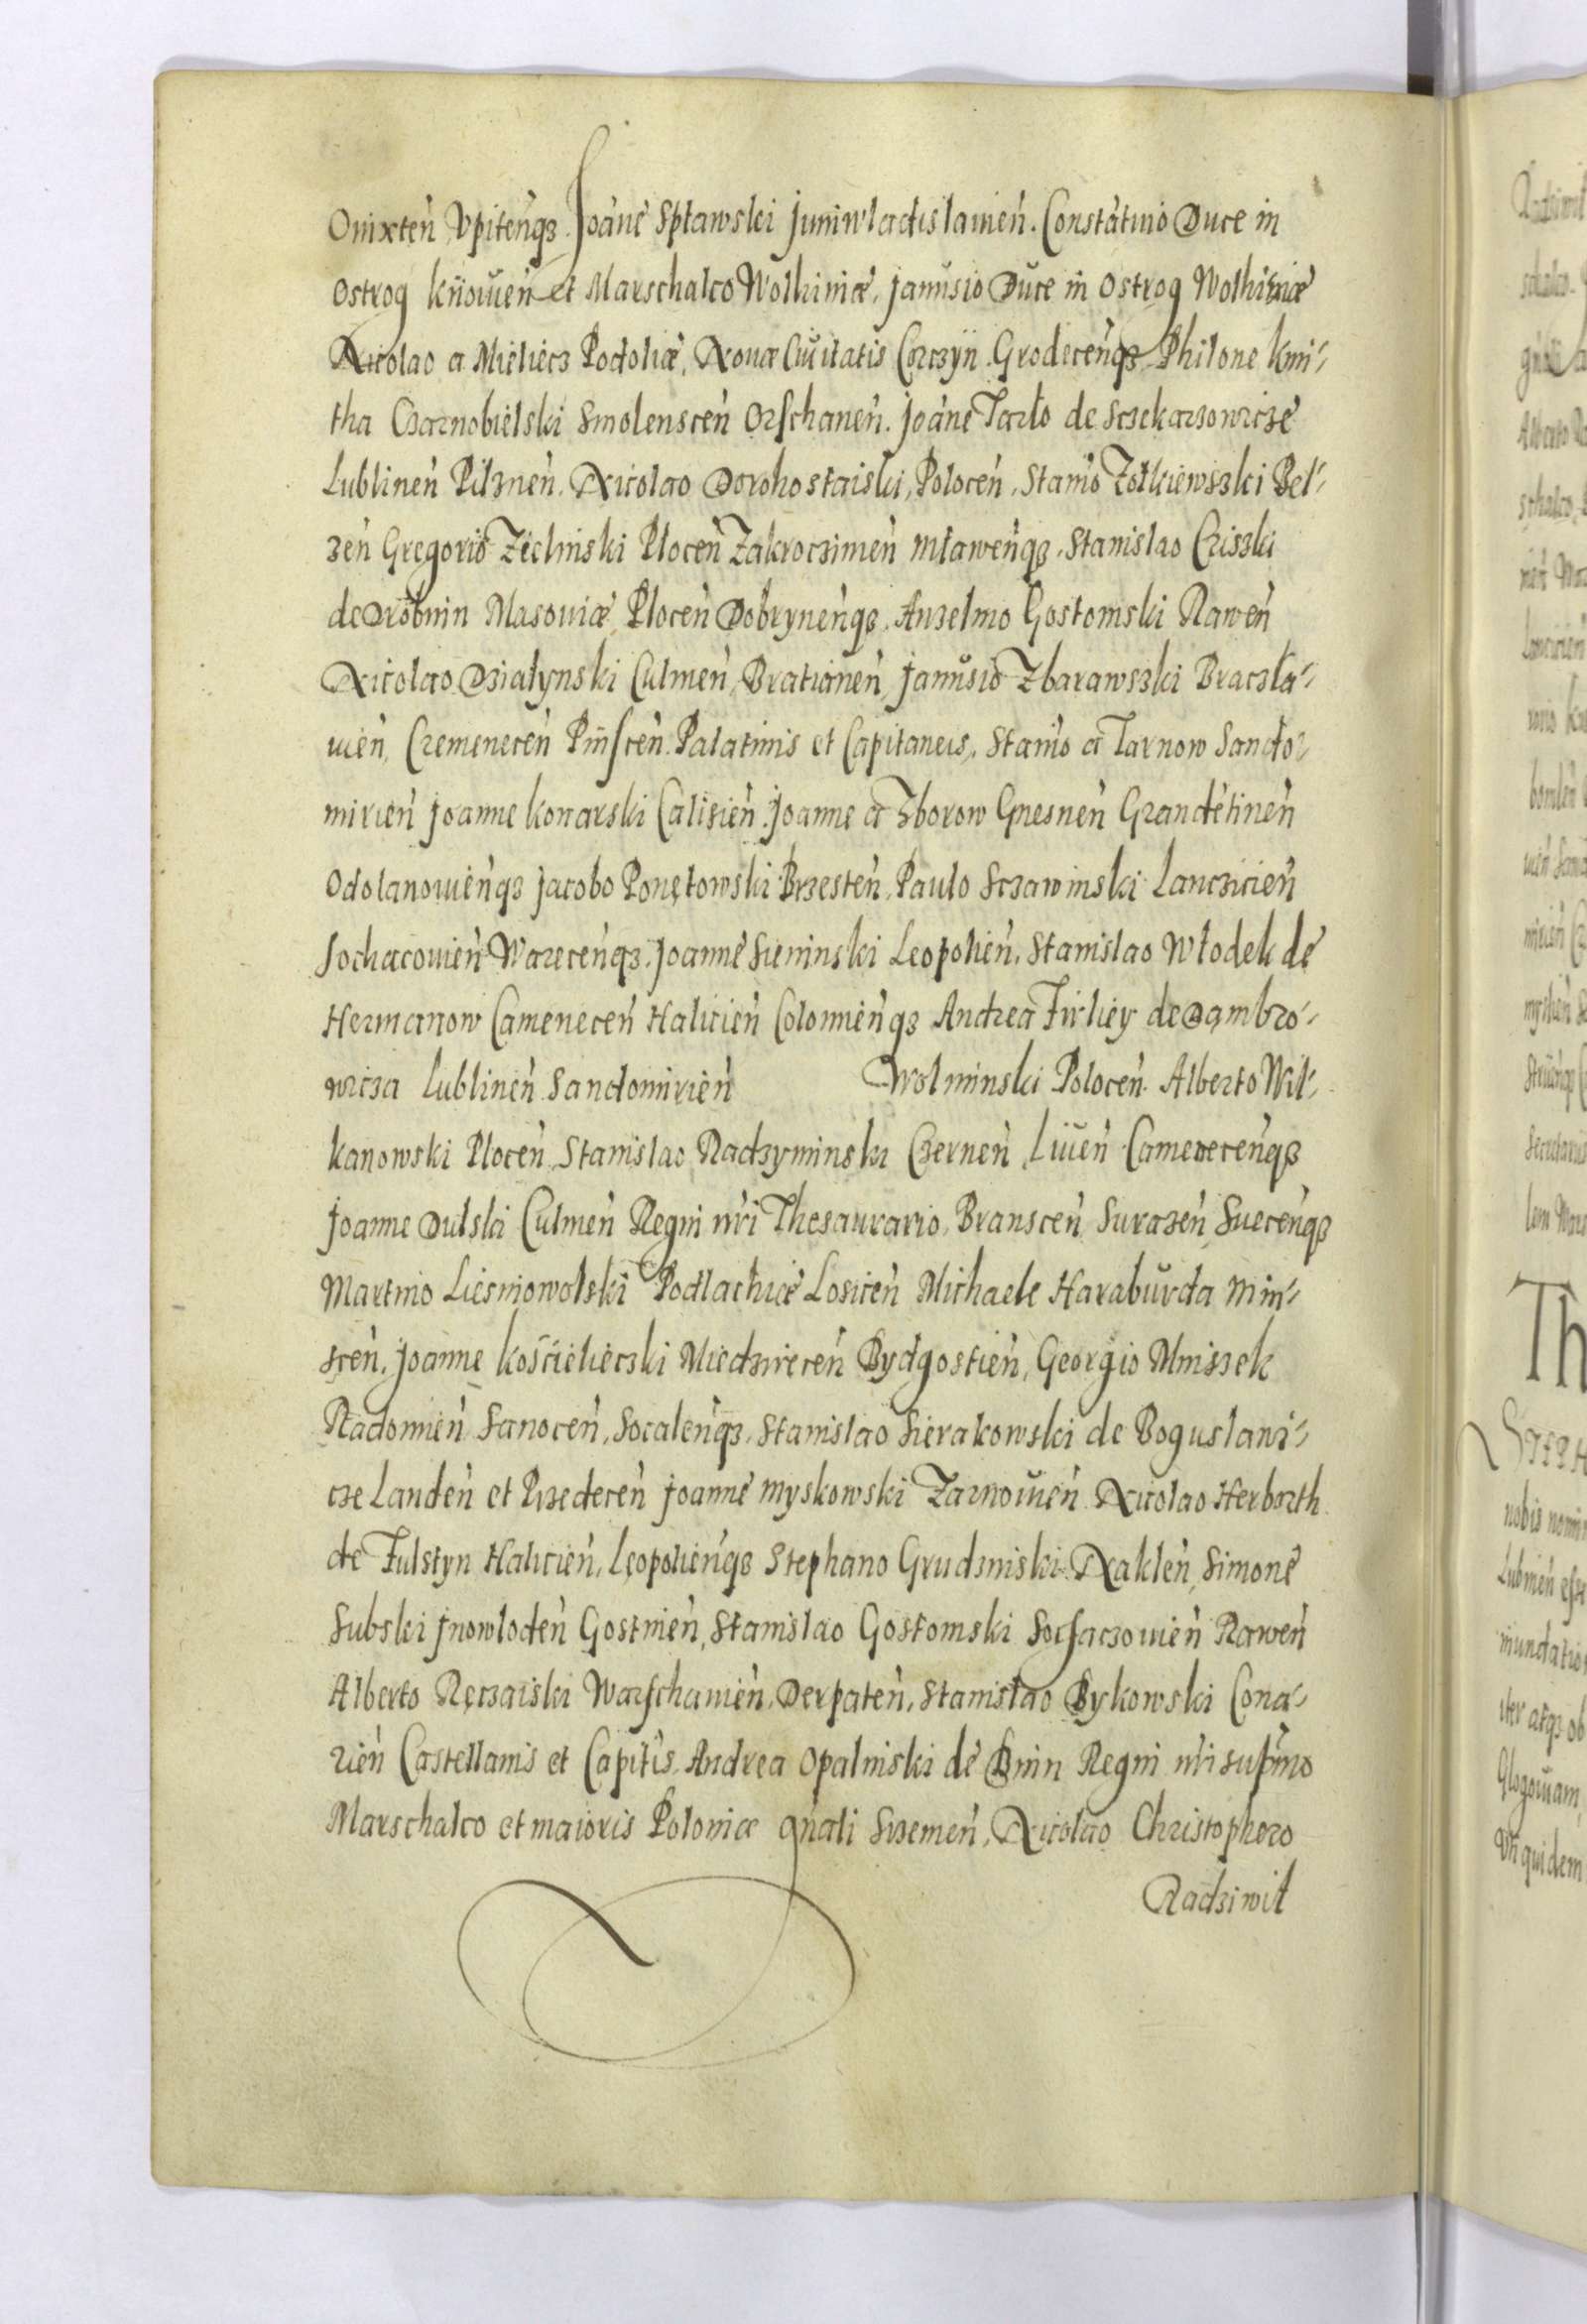 Onixteń Vpiteńqз. Joáne Spławski Juniwladislauień. Constátino Duce in
Ostrog Kiiouień et Marschalco Wolhiniæ, Janusio Duce in Ostrog Wolhiniæ
Nicolao a Mieliecz Podoliæ, Nouæ Ciuitatis Corczyn. Grodeceńqз Philone Kmi-
tha Czarnobielski Smolensceń Orschaneń. Joáne Tarło de Sczekarzowicze
Lublineń Pilzneń. Nicolao Dorohostaiski, Poloceń, Stanio Zołkiewszki Bel-
zeń Gregorio Zielinski Ploceń Zakroczimeń Mławeńqз, Stanislao Criszki
de Drobnin Masouiæ Ploceń Dobryneńqз, Anzelmo Gostomski Raweń
Nicolao Dzialynski Culmeń, Bratianeń, Janusio Zbarawszki Braczła-
uień, Cremeneceń Pinsceń. Palatinis et Capitaneis, Stanio a Tarnow Sando-
mirień Joanne Konarski Calisień. Joanne a Zborow Gnesneń Grandétineń
Odolanouieńqз Jacobo Ponętowski Brzesteń, Paulo Sczawinski Lancziciеń
Sochacouień Wareceńqз. Joanne Sieninski Leopolień, Stanislao Włodek de
Hermanow Cameneceń Halicień Colomieńqз Andrea Firliey de Dąmbro-
wicza Lublineń Sandomirień Wolminski Poloceń. Alberto Wil-
kanowski Ploceń, Stanislao Radzyminski Czerneń, Liueń Cameneceńqз
Joanne Dulski Culmeń Regni nri Thesaurario, Bransceń, Surazeń Sueceńqз
Martino Liesniowolski Podlachiæ Losiceń Michaele Haraburda Min-
sceń, Joanne Kościelieczki Miedzireceń Bydgostień, Georgio Mniszek
Radomień Sanoceń, Socaleńqз, Stanislao Sierakowski de Boguslawi-
cze Landeń et Przedeceń Joanne Myskowski Zarnouień Nicolao Herborth
de Fulstyn Halicień, Leopolieńqз Stephano Grudzinski Nakleń, Simone
Subski Jnowlodeń Gostinień, Stanislao Gostomski Sochaczouień Raweń
Alberto Ręczaiski Warschauień, Derpateń, Stanislao Bykowski Cona-
rień Castellanis et Capitis, Andrea Opalinski de Bnin Regni nri supmo
Marschalco et maioris Poloniæ gnali Sremeń, Nicolao Christophoro
Radziwił